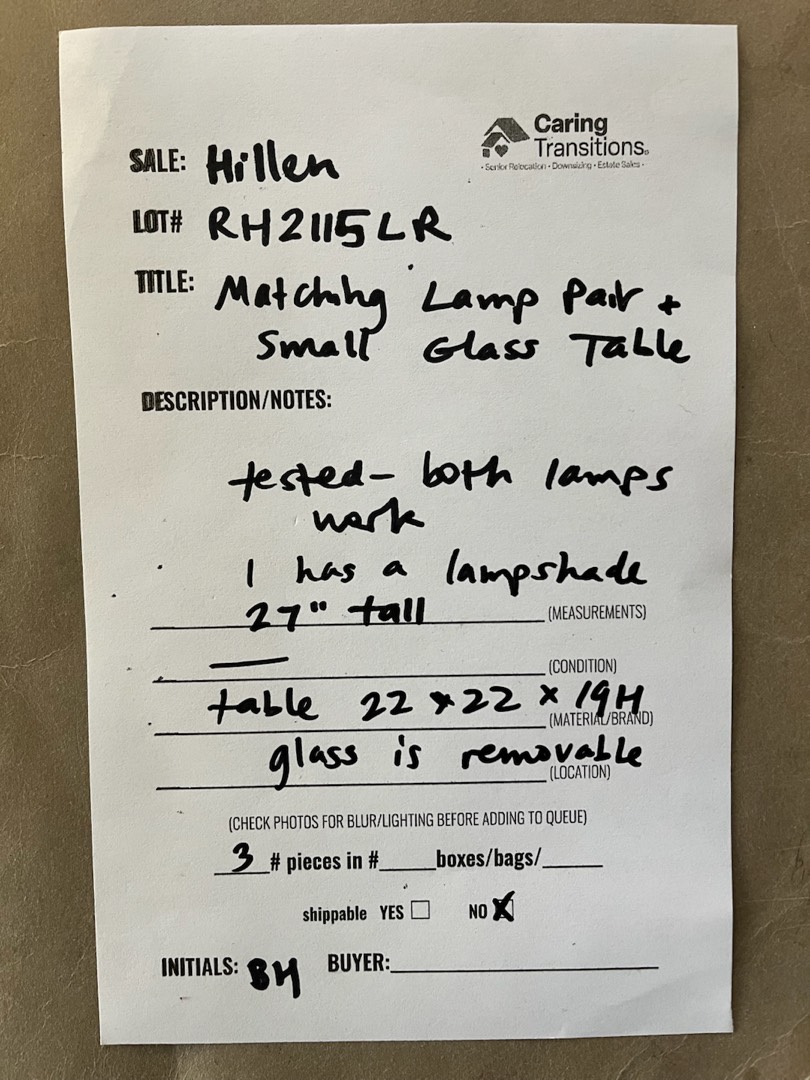 Caring
Transitions®
• Senior Relocation • Downsizing • Estate Sales •
SALE: Hillen
LOT# RH2115LR
TITLE: Matching Lamp Pair +
Small Glass Table
DESCRIPTION/NOTES:
tested- both lamps
work
1 has a lampshade
27" tall (MEASUREMENTS)
— (CONDITION)
table 22 x 22 x 19H (MATERIAL/BRAND)
glass is removable (LOCATION)
(CHECK PHOTOS FOR BLUR/LIGHTING BEFORE ADDING TO QUEUE)
3 # pieces in #____boxes/bags/____
shippable YES ☐ NO ☒
INITIALS: BH BUYER:____